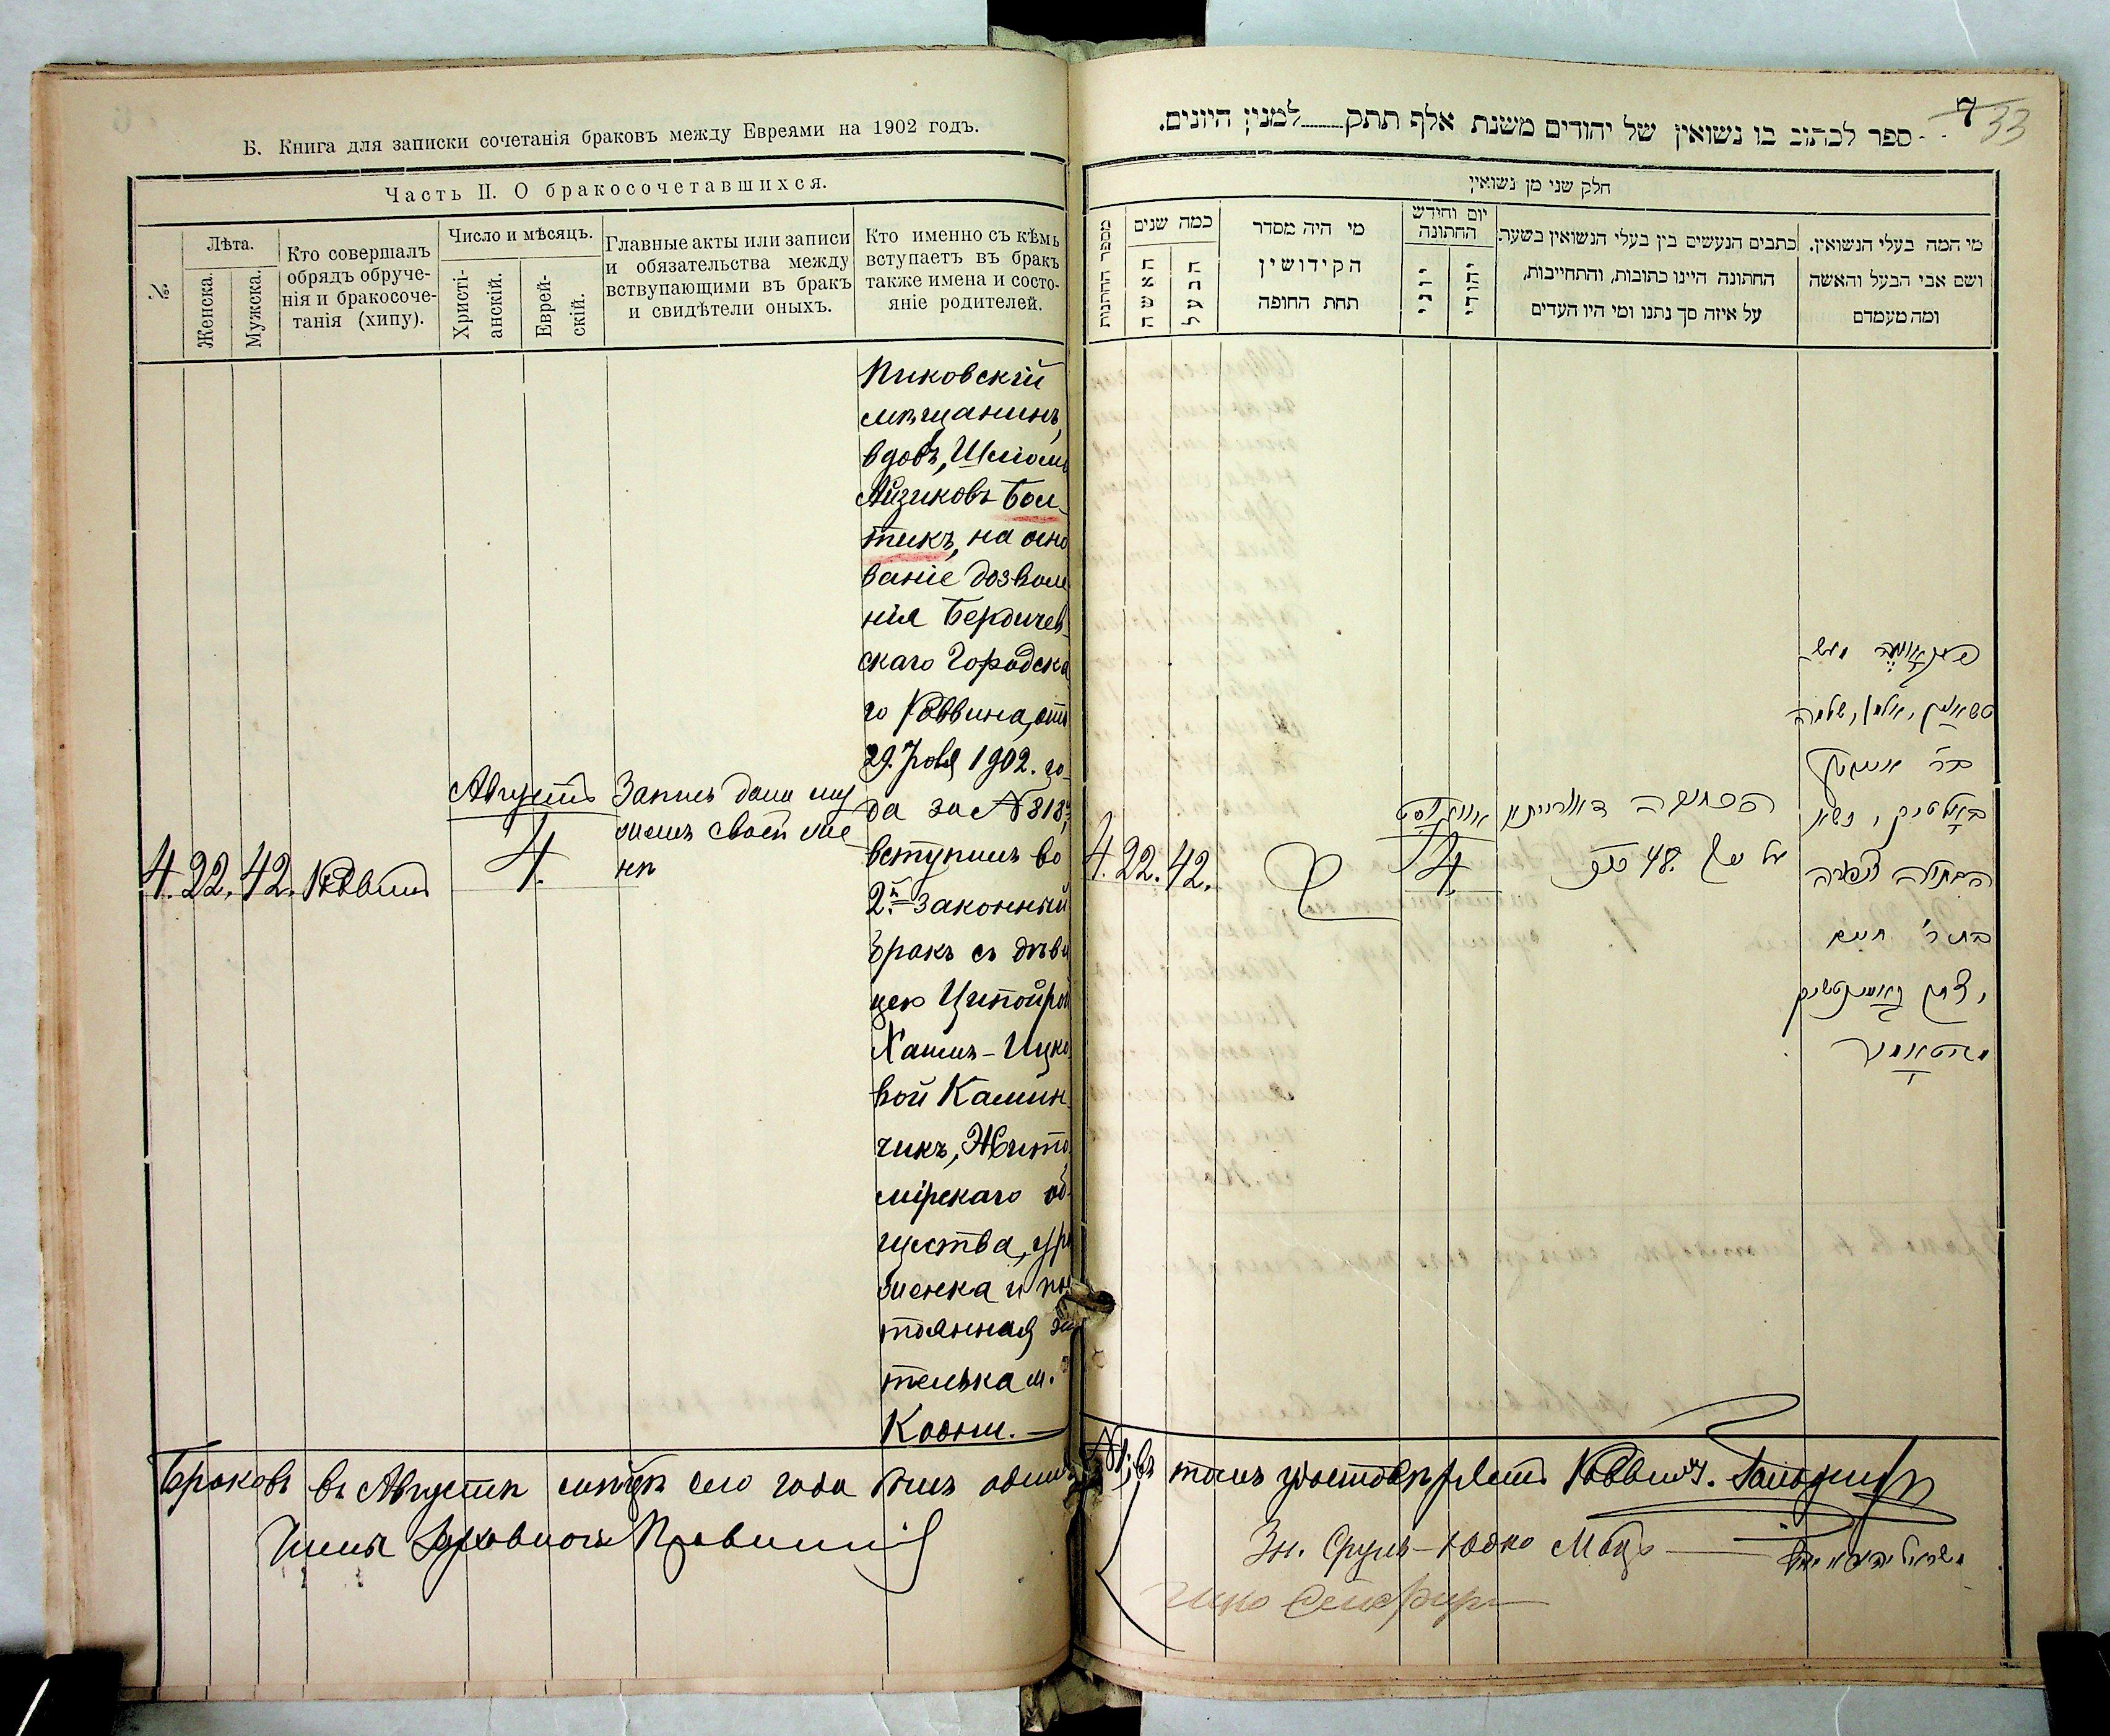 Б. Книга для записки сочетанія браковъ между Евреями на 1902 годъ.
Часть II. О бракосочетавшихся.
№
Лѣта.
Женска.
Мужска.
Кто совершалъ
обрядъ обруче-
нія и бракосоче-
танія (хипу).
Число и мѣсяцъ.
Христі-
анскій.
Еврей-
скій.
Главные акты или записи
и обязательства между
вствупающими въ бракъ
и свидѣтели оныхъ.
Кто именно съ кѣмъ
вступаетъ въ бракъ
также имена и состо-
яніе родителей.
4. 22. 42. Раввинъ
Августъ
4.
Запись дана му
жемъ своей же
нѣ
Пиковскій
мѣщанинъ,
вдовъ, Шлома
Айзиковъ Бол-
тикъ, на осно
ваніе дозволе
нія Бердичев-
скаго Городска
го Раввина, отъ
29. Іюля 1902. го-
да за № 818,
вступилъ во
2й законный
бракъ съ дѣви
цею Ципойрой
Хаимъ-Ицко
вой Камин-
чикъ, Жито
мірскаго об-
щества, уро
женка и пос
тоянная жи
телька м.
Кодни.
Браковъ въ Августѣ мѣсяцѣ сего года былъ одинъ
Члены Духовнаго Правленія
ספר לכתוב בו נשואין של יהודים משנת אלף תתק למנין היונים.
7
33
חלק שני מן נשואין
מספר החתונות
כמה שנים
האשה
הבעל
מי היה מסדר
הקידושין
תחת החופה
יום וחודש
החתונה
יוני
יהודי
כתבים הנעשים בין בעלי הנשואין בשעת
החתונה היינו כתובות, והתחייבות,
על איזה סך נתנו ומי היו העדים
מי המה בעלי הנשואין.
ושם אבי הבעל והאשה
ומה מעמדם
4. 22. 42.
אווגוסט
4.
הכתובה דאורייתא
על סך 48.
אלמן, שלמה
בר אייזיק
באלטיק, נשא
הבתולה צפורה
בת ר' חיים
יצחק קאמינטשיק
זיטאמיר
№ 1, въ томъ удостовѣряетъ Раввинъ.
Зн. Сруль-Юдко